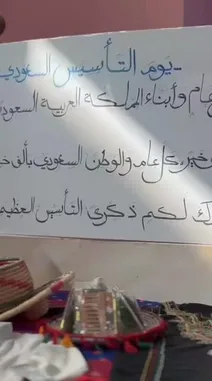 يوم التأسيس السعودي
عام وأبناء المملكة العربية السعودية
خير، كل عام والوطن السعودي بألف
لكم ذكرى التأسيس العظيم